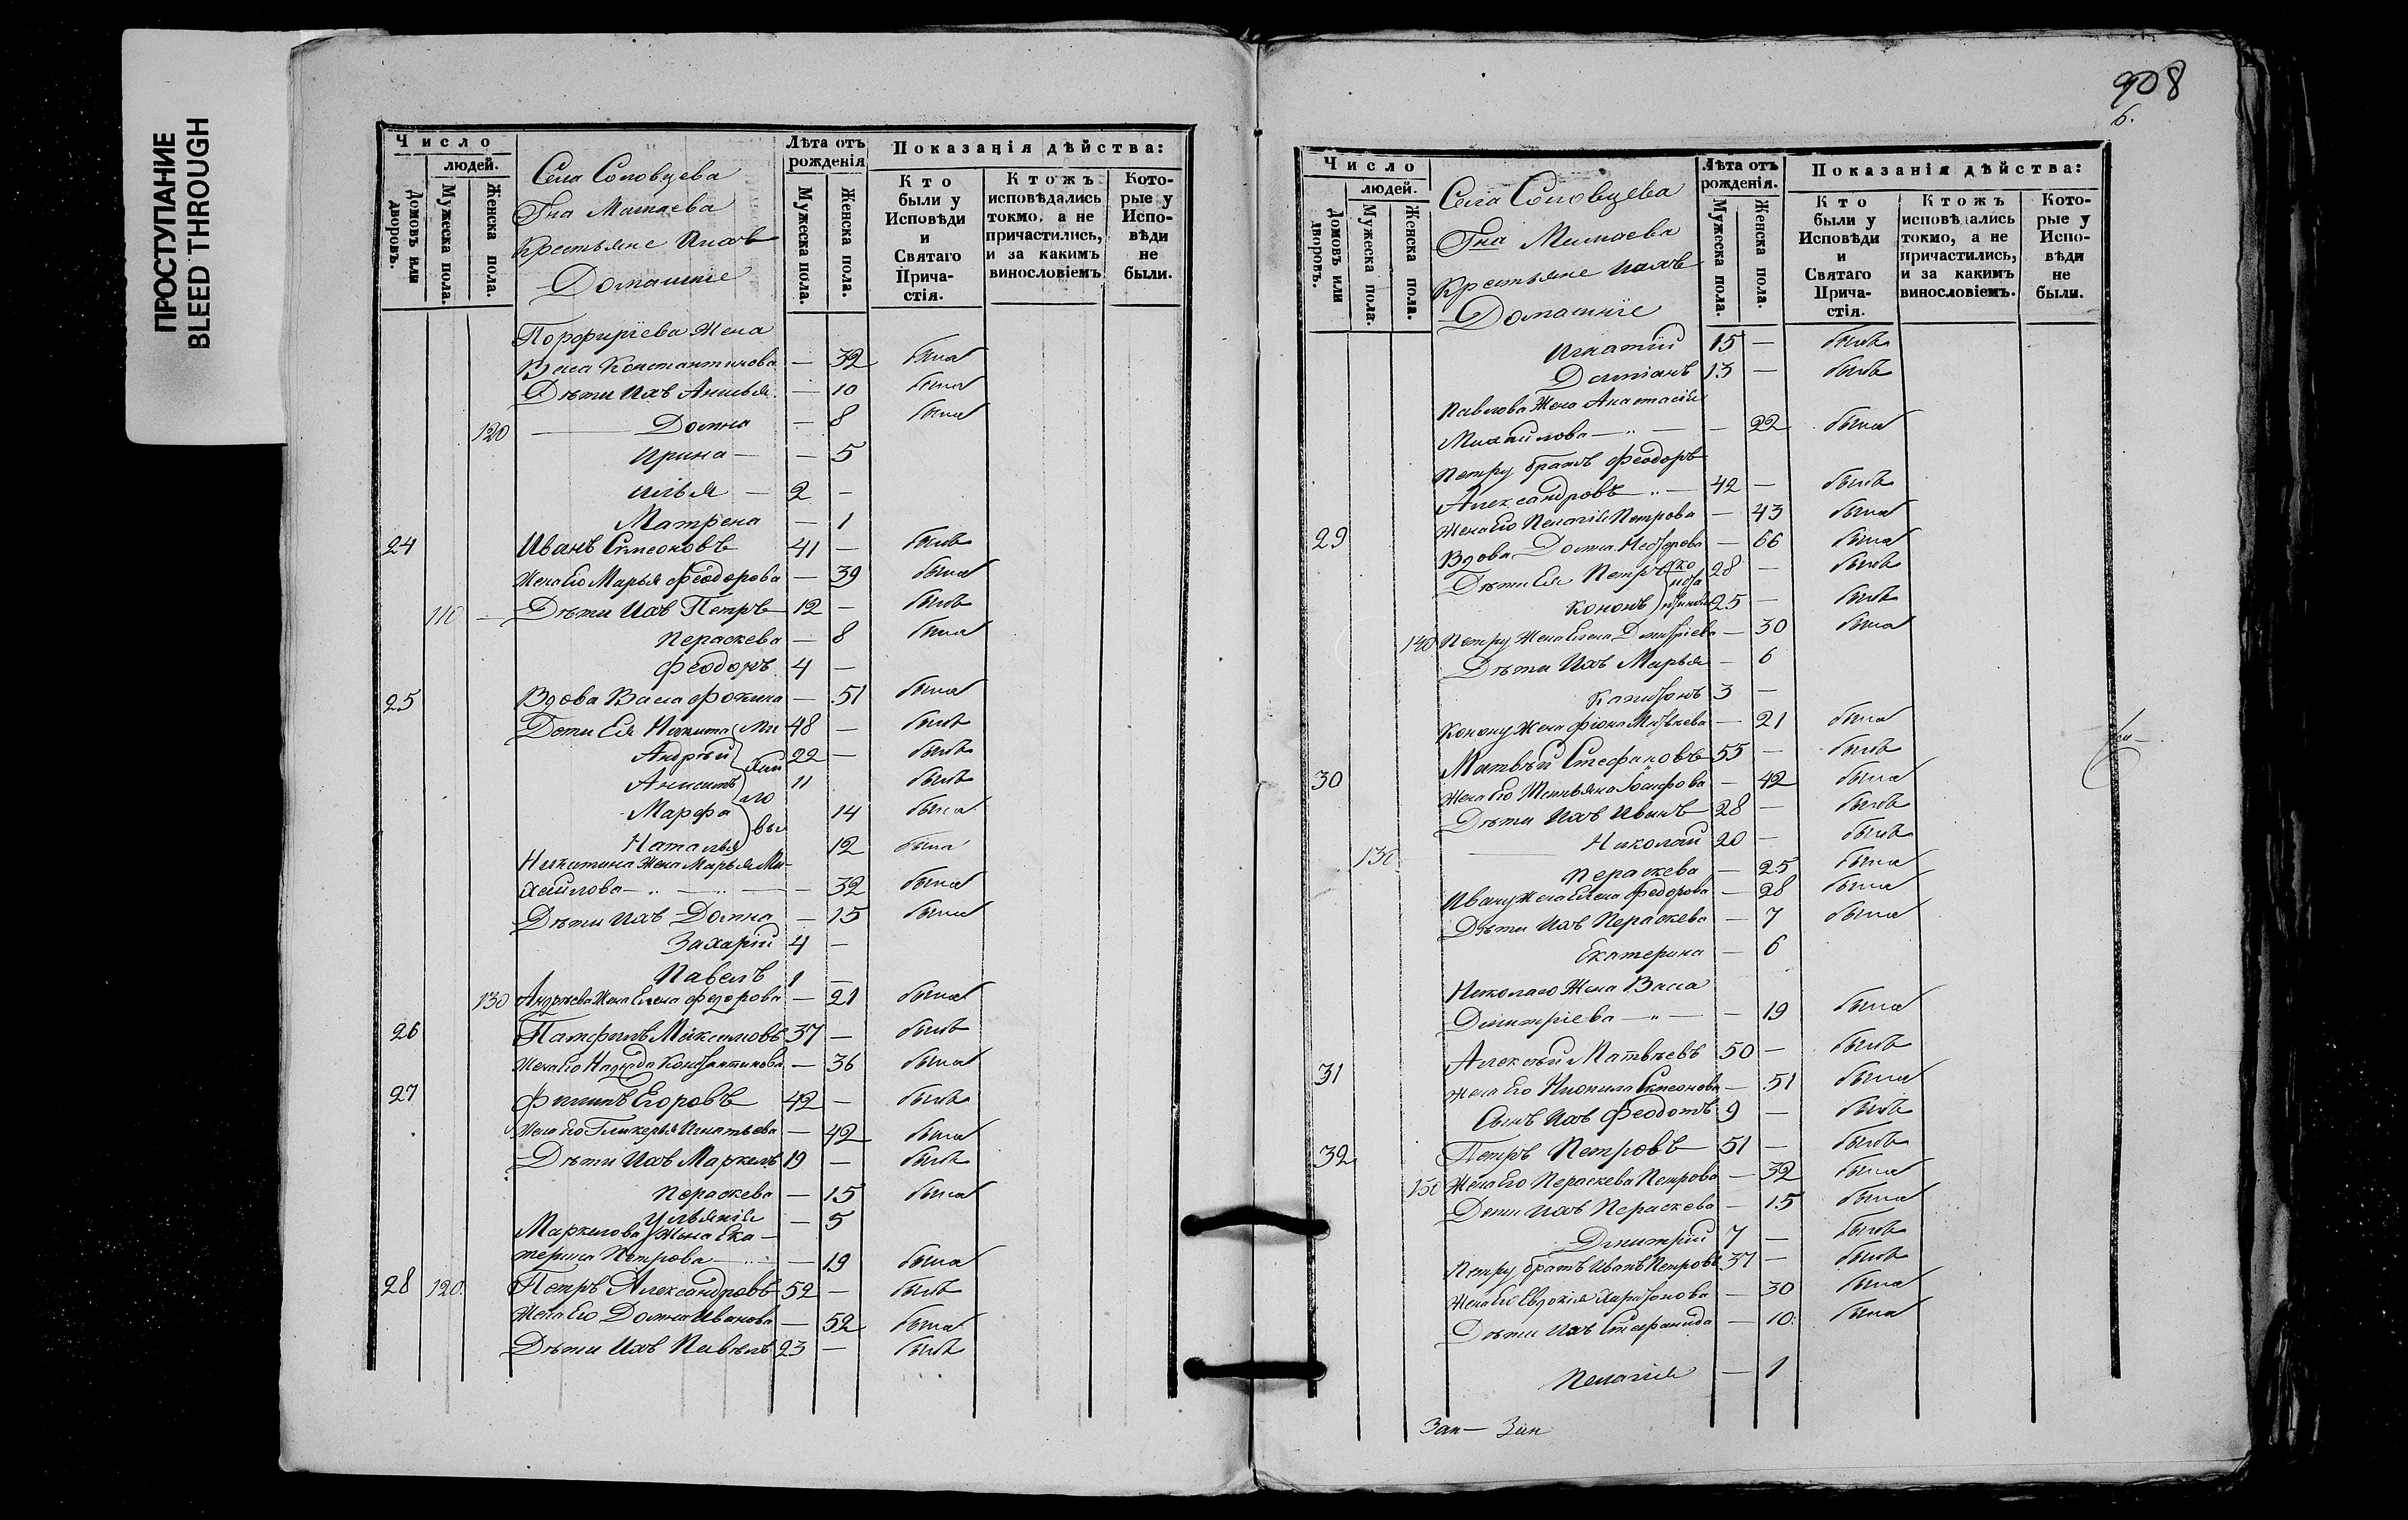 ПРОСТУПАНИЕ
BLEED THROUGH
Число
людей.
Домовъ или дворовъ.
Мужеска пола.
Женска пола.
Села Соловцева
Гна Матаева
Крестьяне Ихъ
Домашніе
Лѣта отъ рожденія
Мужеска пола.
Женска пола.
Показанія дѣйства:
Кто были у Исповѣди и Святаго Прича-стія.
Ктожъ исповѣдались токмо, а не причастились, и за какимъ винословіемъ
Кото-рые у Испо-вѣди не были.
Порфиріева Жена
Васса Константинова — 32 была
Дѣти Ихъ Анисья — 10 была
120 — Домна — 8 была
Ирина — — 5
Илья — 2 —
Матрена — 1
24 Иванъ Симеоновъ 41 — былъ
Жена Его Марья Феодорова — 39 была
110 — Дѣти Ихъ Петръ 12 — былъ
Пераскева — 8 была
Феодоръ 4 —
25 Вдова Васса Фокина — 51 была
Дети Ея Никита (Ми 48 — былъ
Андрей хаи 22 — былъ
Анисимъ ло 11 былъ
Марфа вы 14 была
Наталья 12 была
Никитина Жена Марья Ми-
хаилова — — 32 была
Дѣти Ихъ Домна — 15 была
Захарій 4 —
Павелъ 1 —
130 Андрѣева Жена Елена Федорова — 21 была
26 Памфилъ Максимовъ 37 — былъ
Жена Его Надежда Константинова — 36 была
27 Филипъ Егоровъ 42 — былъ
Жена Его Гликерья Игнатьева — 42 была
Дѣти Ихъ Маркелъ 19 — былъ
Пераскева — 15 была
Ульянія — 5
Маркелова Жена Ека-
терина Петрова — 19 была
28 120. Петръ Александровъ 52 — былъ
Жена Его Домна Иванова — 52 была
Дѣти Ихъ Павелъ 23 — былъ
908
6.
Число
людей.
Домовъ или дворовъ.
Мужеска пола.
Женска пола.
Села Соловцева
Гна Матаева
Крестьяне Ихъ
Домашніе
Лѣта отъ рожденія.
Мужеска пола.
Женска пола.
Показанія дѣйства:
Кто были у Исповѣди и Святаго Прича-стія.
Ктожъ исповѣдались токмо, а не причастились, и за какимъ винословіемъ.
Кото-рые у Испо-вѣди не были.
Игнатій 15 — былъ
Даміанъ 13 — былъ
Павлова Жена Анастасія
Михаилова — — 22 была
Петру братъ Феодоръ
Александровъ — 42 — былъ
Жена Его Пелагія Петрова — 43 была
29 Вдова Домна — 66 была
Дѣти Ея Петръ 28 — былъ
Кононъ 25 — былъ
140 Петру Жена Елена Дмитріева — 30 была
Дѣти Ихъ Марья — 6
Капитонъ 3 —
Конону Жена Фіона Матвѣева — 21 была
30 Матвѣй Стефановъ 55 — былъ
Жена Его Татьяна Іосифова — 42 была
Дѣти Ихъ Иванъ 28 — былъ
130 Николай 20 — былъ
Пераскева — 25 была
Ивану Жена Елена Федорова — 28 была
Дѣти Ихъ Пераскева — 7 была
Екатерина — 6
Николаю Жена Васса
Димитріева — — 19 была
31 Алексѣй Матвѣевъ 50 — былъ
Жена Его Неонила Симеонова — 51 была
Сынъ Ихъ Феодотъ 9 — былъ
32 Петръ Петровъ 51 — былъ
150 Жена Его Пераскева Петрова — 32 была
Дети Ихъ Пераскева — 15 была
Дмитрий 7 — былъ
Петру братъ Иванъ Петровъ 37 — былъ
Жена Его Евдокія Харитонова — 30 была
Дѣти Ихъ Стефанида — 10. была
Пелагія — 1